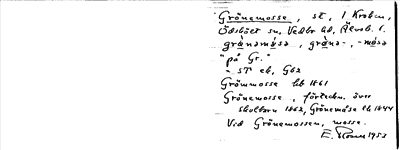 Grönemosse, st, 1 Kroken,
Ödsböet sn, Vedbo hd, Älvsb. l.
grǟnamåsa, gräna-, -måsa
"på Gr."
- ST eb, G62
Grönmosse hb 1861
Grönemosse, förteckn. över
skolbarn 1862, Grönemåse lb 1844
Vid Grönemossen, mosse.
E. 1953